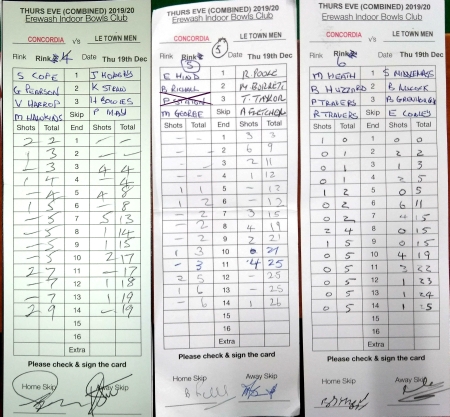 THURS EVE (COMBINED) 2019/20
Erewash Indoor Bowls Club
CONCORDIA v's LE TOWN MEN
Rink Rink 4 Thu 19th Dec
S COPE 1 J
G PEARSON 2 K
V HARROP 3 H BOWLES
M HAWKINS Skip P MAY
Shots Total End Shots Total
2 2 1 - -
1 3 2 - -
- 3 3 4 4
1 4 4 - 4
- 4 5 4 8
1 5 6 - 8
- 7 5 13
- 8 1 14
- 9 1 15
- 10 2 17
2 7 11 - 17
- 7 12 1 18
- 7 13 1 19
2 9 14 - 19
15
16
Extra
Please check & sign the card
Home Skip Away Skip
THURS EVE (COMBINED) 2019/20
Erewash Indoor Bowls Club
CONCORDIA v's LE TOWN MEN
Rink Rink 5 5 Thu 19th Dec
E HIND 1 R POOLE
B 2 M BURRETT
3 T TAYLOR
M GEORGE Skip A FLETCHER
Shots Total End Shots Total
1 3 3
2 6 9
3 2 11
4 1 12
1 1 5 - 12
1 2 6 - 12
- 2 7 3 15
- 2 8 4 19
- 2 9 2 21
1 3 10 0 21
- 3 11 4 25
2 5 12 - 25
1 6 13 - 25
- 6 14 1 26
15
16
Extra
Please check & sign the card
Home Skip Away Skip
THURS EVE (COMBINED) 2019/20
Erewash Indoor Bowls Club
CONCORDIA v's LE TOWN MEN
Rink Rink 6 Thu 19th Dec
M HEATH 1 S
B HUZZARD 2 B
P TRAVERS 3 B
R TRAVERS Skip E
Shots Total End Shots Total
1 0 1 0
0 1 2 2 2
0 1 3 1 3
0 1 4 2 5
1 2 5 0 5
0 2 6 6 11
0 2 7 15
2 4 8 0 15
1 5 9 0 15
0 5 10 4 19
0 5 11 3 22
0 5 12 1 23
0 5 13 1 24
0 5 14 1 25
15
16
Extra
Please check & sign the card
Home Skip Away Skip